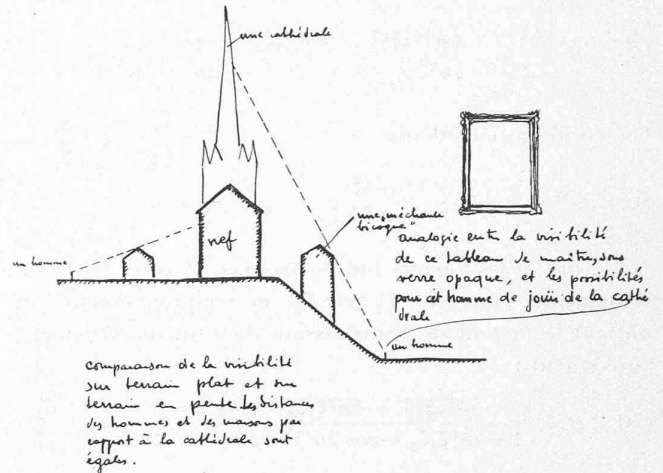 une cathédrale
nef
un homme
une "méchante
bicoque"
analogie entre la visibilité
de ce tableau de maître, sous
verre opaque, et les possibilités
pour cet homme de jouir de la cathé
drale
un homme
comparaison de la visibilité
sur terrain plat et sur
terrain en pente. Les distances
des hommes et des maisons par
rapport à la cathédrale sont
égales.